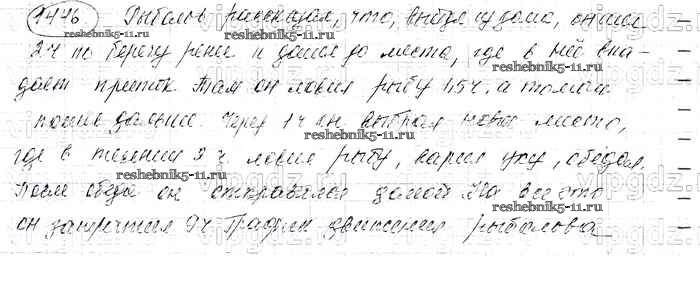 1446 Рыболов рассказал, что, выйдя из дома, он шел
2 ч по берегу реки и дошел до места, где в неё впа-
дает приток. Там он ловил рыбу 1,5 ч, а потом
пошел дальше. Через 1 ч он выбрал новое место,
где в течении 3 ч. ловил рыбу, варил уху, обедал.
После обеда он отправился домой. На все это
он затратил 9 ч. График движения рыболова
reshebnik5-11.ru
reshebnik5-11.ru
reshebnik5-11.ru
reshebnik5-11.ru
reshebnik5-11.ru
reshebnik5-11.ru
reshebnik5-11.ru